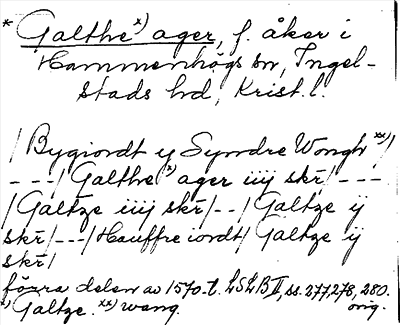 * Galthe x) ager, f. åker i
Hammenhögs sn, Ingel-
stads hd, Krist. l.
/ Bygiordt ij Syndre Wongh xx)/
---/ Galthe x) ager iiij skr̄/---
/ Galtze iiij skr̄/--/ Galtze ij
skr̄/---/ Hauffre iordt/ Galtze ij
skr̄/
förra delen av 1570-t. LSLB II, ss. 277, 278, 280.
x) Galtze. xx) wang. orig.